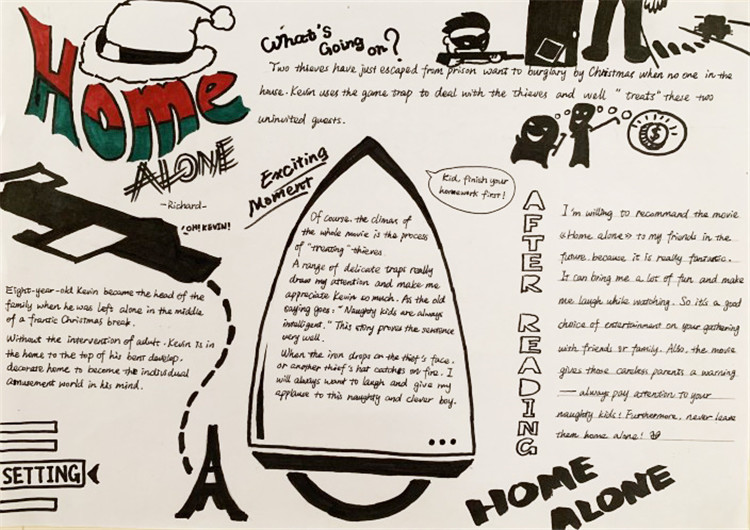 Home
ALONE
-Richard-
"OH! KEVIN!
Eight-year-old Kevin became the head of the
family when he was left alone in the middle
of a frantic Christmas break.
Without the intervention of adult. Kevin is in
the home to the top of his bent develop.
decorate home to become the individual
amusement world in his mind.
SETTING
What's
Going on?
Two thieves have just escaped from prison want to burglary by Christmas when no one in the
house. Kevin uses the game trap to deal with the thieves and well "treats" these two
uninvited guests.
Exciting
Moment
Of course. the climax of
the whole movie is the process
of "treating" thieves.
A range of delicate traps really
draw my attention and make me
appreciate Kevin so much. As the old
saying goes: "Naughty kids are always
intelligent." This story proves the sentence
very well.
When the iron drops on the thief's face.
or another thief's hat catches on fire. I
will always want to laugh and give my
applause to this naughty and clever boy.
Kid, finish your
homework first!
AFTER READING
I'm willing to recommand the movie
«Home alone» to my friends in the
future. because it is really fantastic.
It can bring me a lot of fun and make
me laugh while watching. So it's a good
choice of entertainment on your gathering
with friends or family. Also, the movie
gives those careless parents a warning
— always pay attention to your
naughty kids! Furthermore, never leave
them home alone!
HOME
ALONE